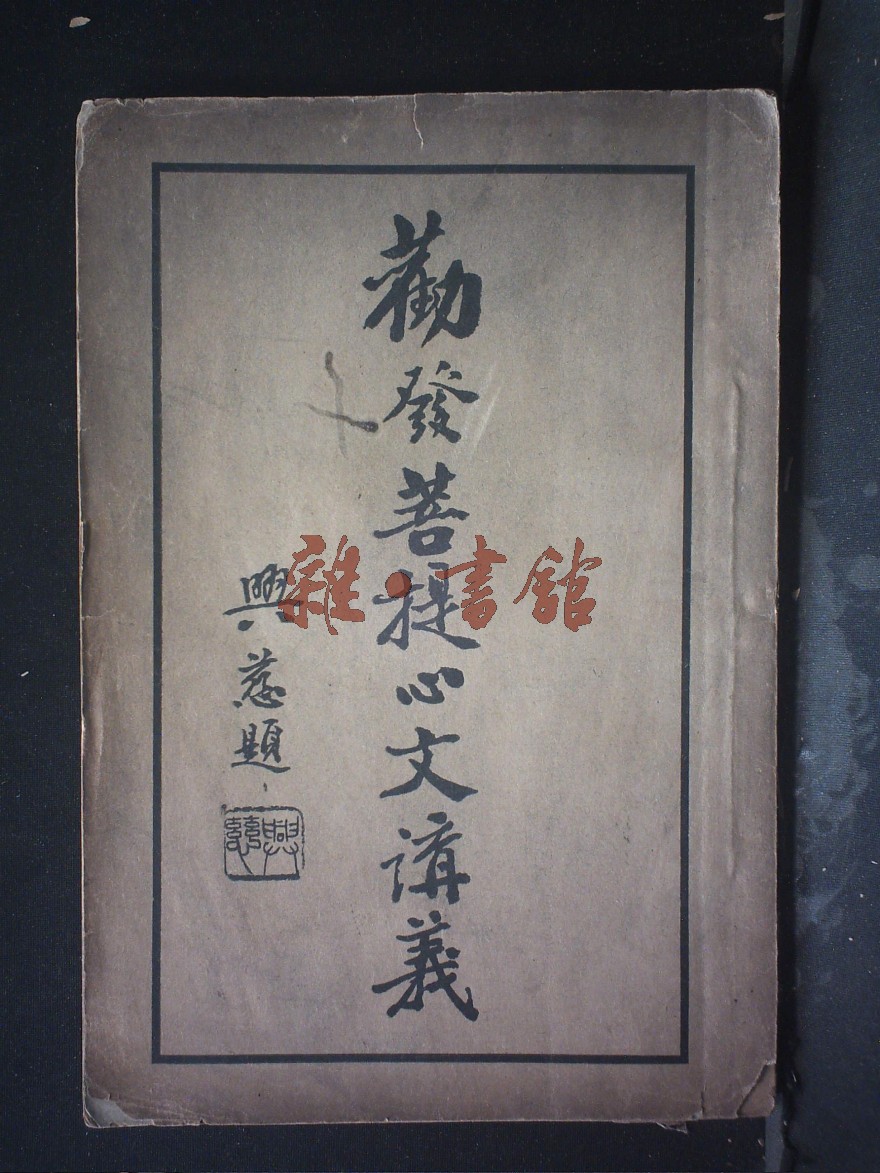 勸發菩提心文講義
興慈題
興慈
雜·書館